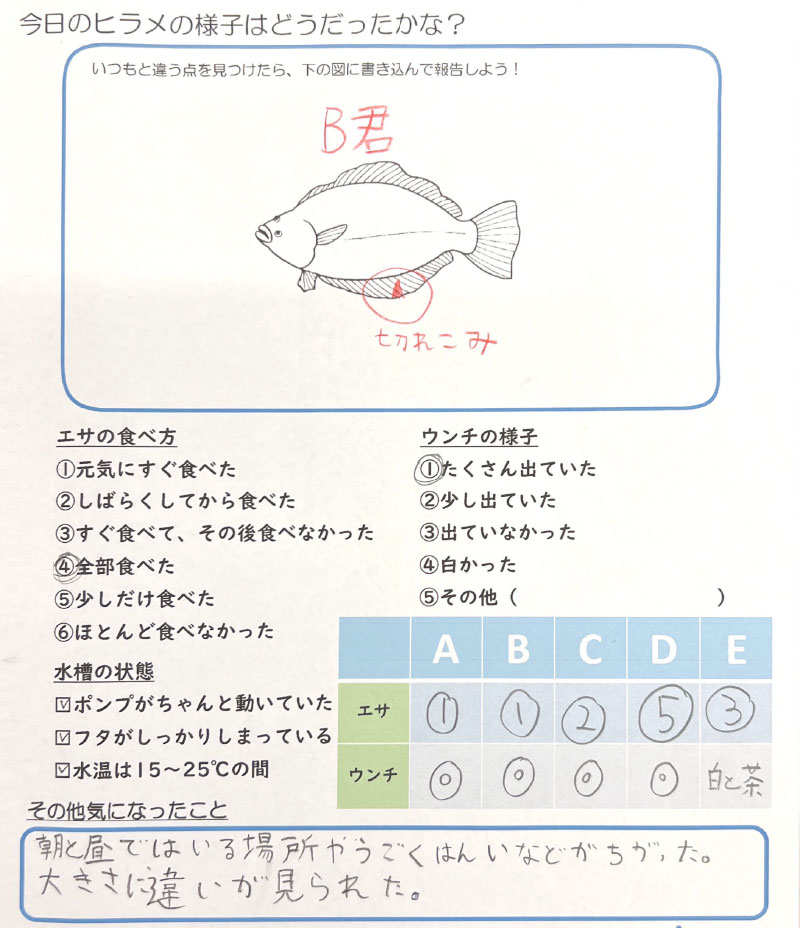 今日のヒラメの様子はどうだったかな？
いつもと違う点を見つけたら、下の図に書き込んで報告しよう！
B君
切れこみ
エサの食べ方
①元気にすぐ食べた
②しばらくしてから食べた
③すぐ食べて、その後食べなかった
④全部食べた
⑤少しだけ食べた
⑥ほとんど食べなかった
ウンチの様子
①たくさん出ていた
②少し出ていた
③出ていなかった
④白かった
⑤その他（　　　　　　　　　　）
水槽の状態
☑ポンプがちゃんと動いていた
☑フタがしっかりしまっている
☑水温は15～25℃の間
A B C D E
エサ ① ① ② ⑤ ③
ウンチ ◎ ◎ ◎ ◎ 白と茶
その他気になったこと
朝と昼ではいる場所やうごくはんいなどがちがった。
大きさに違いが見られた。